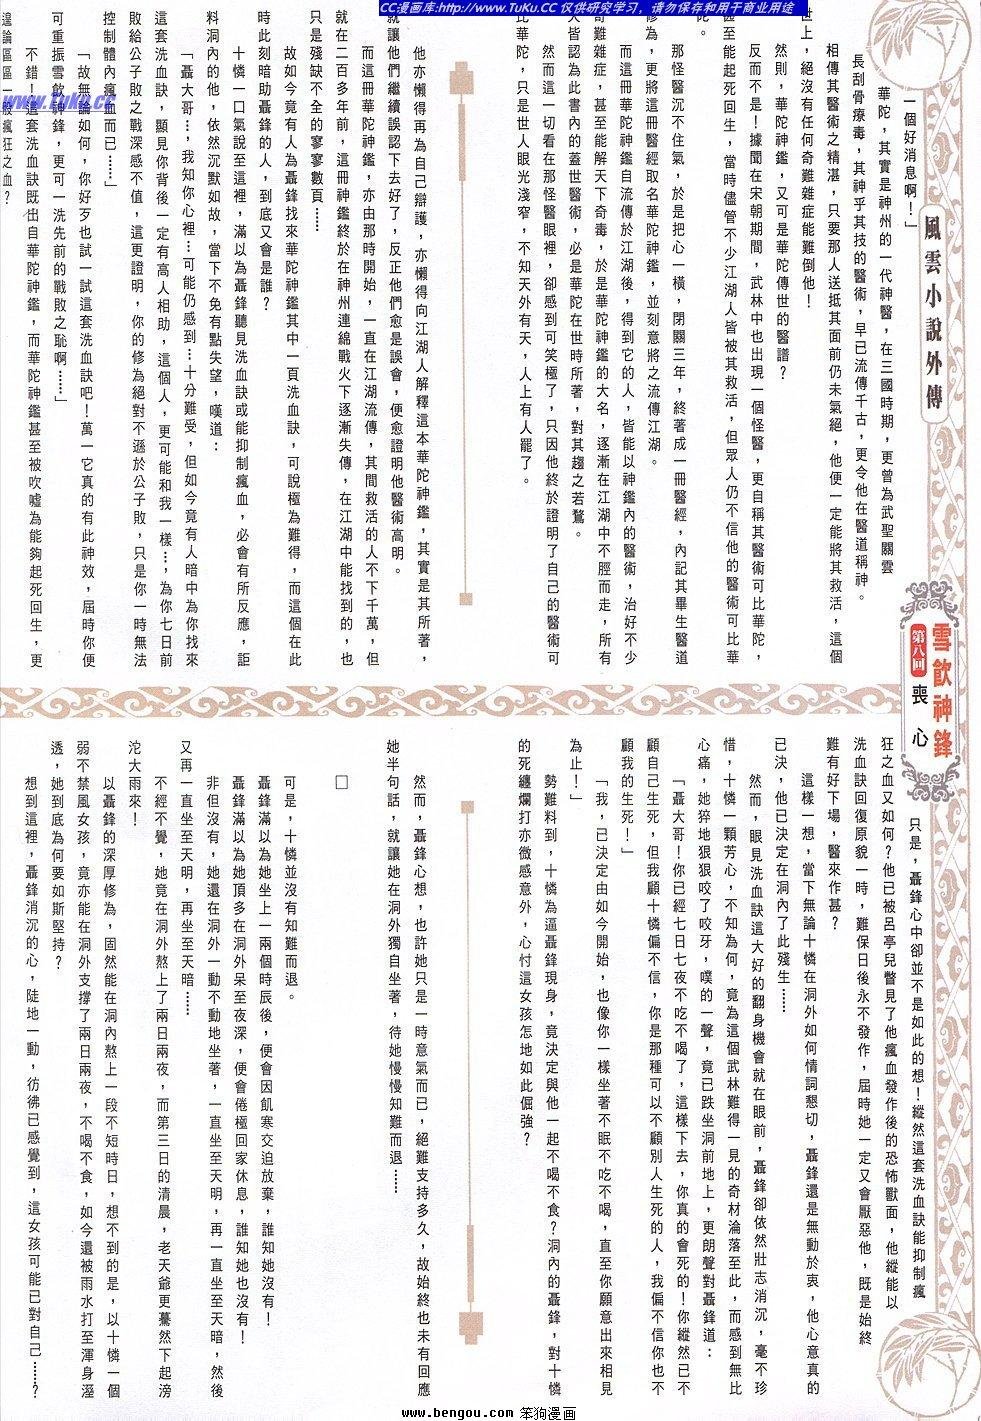 CC漫画库:http://www.TuKu.CC 仅供研究学习，请勿保存和用于商业用途
風雲小說外傳
雪飲神鋒
第八回
喪心
一個好消息啊！」
華陀，其實是神州的一代神醫，在三國時期，更曾為武聖關雲
長刮骨療毒，其神乎其技的醫術，早已流傳千古，更令他在醫道稱神。
相傳其醫術之精湛，只要那人送抵其面前仍未氣絕，他便一定能將其救活，這個
世上，絕沒有任何奇難雜症能難倒他！
然則，華陀神鑑，又可是華陀傳世的醫譜？
反而不是！據聞在宋朝期間，武林中也出現一個怪醫，更自稱其醫術可比華陀，
甚至能起死回生，當時儘管不少江湖人皆被其救活，但眾人仍不信他的醫術可比華
陀。
那怪醫沉不住氣，於是把心一橫，閉關三年，終著成一冊醫經，內記其畢生醫道
修為，更將這冊醫經取名華陀神鑑，並刻意將之流傳江湖。
而這冊華陀神鑑自流傳於江湖後，得到它的人，皆能以神鑑內的醫術，治好不少
奇難雜症，甚至能解天下奇毒，於是華陀神鑑的大名，逐漸在江湖中不脛而走，所有
人皆認為此書內的蓋世醫術，必是華陀在世時所著，對其趨之若鶩。
然而這一切看在那怪醫眼裡，卻感到可笑極了，只因他終於證明了自己的醫術可
比華陀，只是世人眼光淺窄，不知天外有天，人上有人罷了。
他亦懶得再為自己辯護，亦懶得向江湖人解釋這本華陀神鑑，其實是其所著，
就讓他們繼續誤認下去好了，反正他們愈是誤會，便愈證明他醫術高明。
而這冊華陀神鑑，亦由那時開始，一直在江湖流傳，其間救活的人不下千萬，但
就在二百多年前，這冊神鑑終於在神州連綿戰火下逐漸失傳，在江湖中能找到的，也
只是殘缺不全的寥寥數頁……
故如今竟有人為聶鋒找來華陀神鑑其中一頁洗血訣，可說極為難得，而這個在此
時此刻暗助聶鋒的人，到底又會是誰？
十憐一口氣說至這裡，滿以為聶鋒聽見洗血訣或能抑制瘋血，必會有所反應，詎
料洞內的他，依然沉默如故，當下不免有點失望，嘆道：
「聶大哥…，我知你心裡…可能仍感到…十分難受，但如今竟有人暗中為你找來
這套洗血訣，顯見你背後一定有高人相助，這個人，更可能和我一樣…，為你七日前
敗給公子敗之戰深感不值，這更證明，你的修為絕對不遜於公子敗，只是你一時無法
控制體內瘋血而已……」
「故無論如何，你好歹也試一試這套洗血訣吧！萬一它真的有此神效，屆時你便
可重振雪飲神鋒，更可一洗先前的戰敗之恥啊……」
不錯！這套洗血訣既出自華陀神鑑，而華陀神鑑甚至被吹噓為能夠起死回生，更
遑論區區一股瘋狂之血？
www.TuKu.cc
只是，聶鋒心中卻並不是如此的想！縱然這套洗血訣能抑制瘋
狂之血又如何？他已被呂亭兒瞥見了他瘋血發作後的恐怖獸面，他縱能以
洗血訣回復原貌一時，難保日後永不發作，屆時她一定又會厭惡他，既是始終
難有好下場，醫來作甚？
這樣一想，當下無論十憐在洞外如何情詞懇切，聶鋒還是無動於衷，他心意真的
已決，他已決定在洞內了此殘生……
然而，眼見洗血訣這大好的翻身機會就在眼前，聶鋒卻依然壯志消沉，毫不珍
惜，十憐一顆芳心，不知為何，竟為這個武林難得一見的奇材淪落至此，而感到無比
心痛，她猝地狠狠咬了咬牙，噗的一聲，竟已跌坐洞前地上，更朗聲對聶鋒道：
「聶大哥！你已經七日七夜不吃不喝了，這樣下去，你真的會死的！你縱然已不
顧自己生死，但我顧十憐偏不信，你是那種可以不顧別人生死的人，我偏不信你也不
顧我的生死！」
「我，已決定由如今開始，也像你一樣坐著不眠不吃不喝，直至你願意出來相見
為止！」
勢難料到，十憐為逼聶鋒現身，竟決定與他一起不喝不食？洞內的聶鋒，對十憐
的死纏爛打亦微感意外，心忖這女孩怎地如此倔強？
然而，聶鋒心想，也許她只是一時意氣而已，絕難支持多久，故始終也未有回應
她半句話，就讓她在洞外獨自坐著，待她慢慢知難而退……
□
可是，十憐並沒有知難而退。
聶鋒滿以為她坐上一兩個時辰後，便會因飢寒交迫放棄，誰知她沒有！
聶鋒滿以為她頂多在洞外呆至夜深，便會倦極回家休息，誰知她也沒有！
非但沒有，她還在洞外一動不動地坐著，一直坐至天明，再一直坐至天暗，然後
又再一直坐至天明，再坐至天暗……
不經不覺，她竟在洞外熬上了兩日兩夜，而第三日的清晨，老天爺更驀然下起滂
沱大雨來！
以聶鋒的深厚修為，固然能在洞內熬上一段不短時日，想不到的是，以十憐一個
弱不禁風女孩，竟亦能在洞外支撐了兩日兩夜，不喝不食，如今還被雨水打至渾身溼
透，她到底為何要如斯堅持？
想到這裡，聶鋒消沉的心，陡地一動，彷彿已感覺到，這女孩可能已對自己……？
www.bengou.com 笨狗漫画